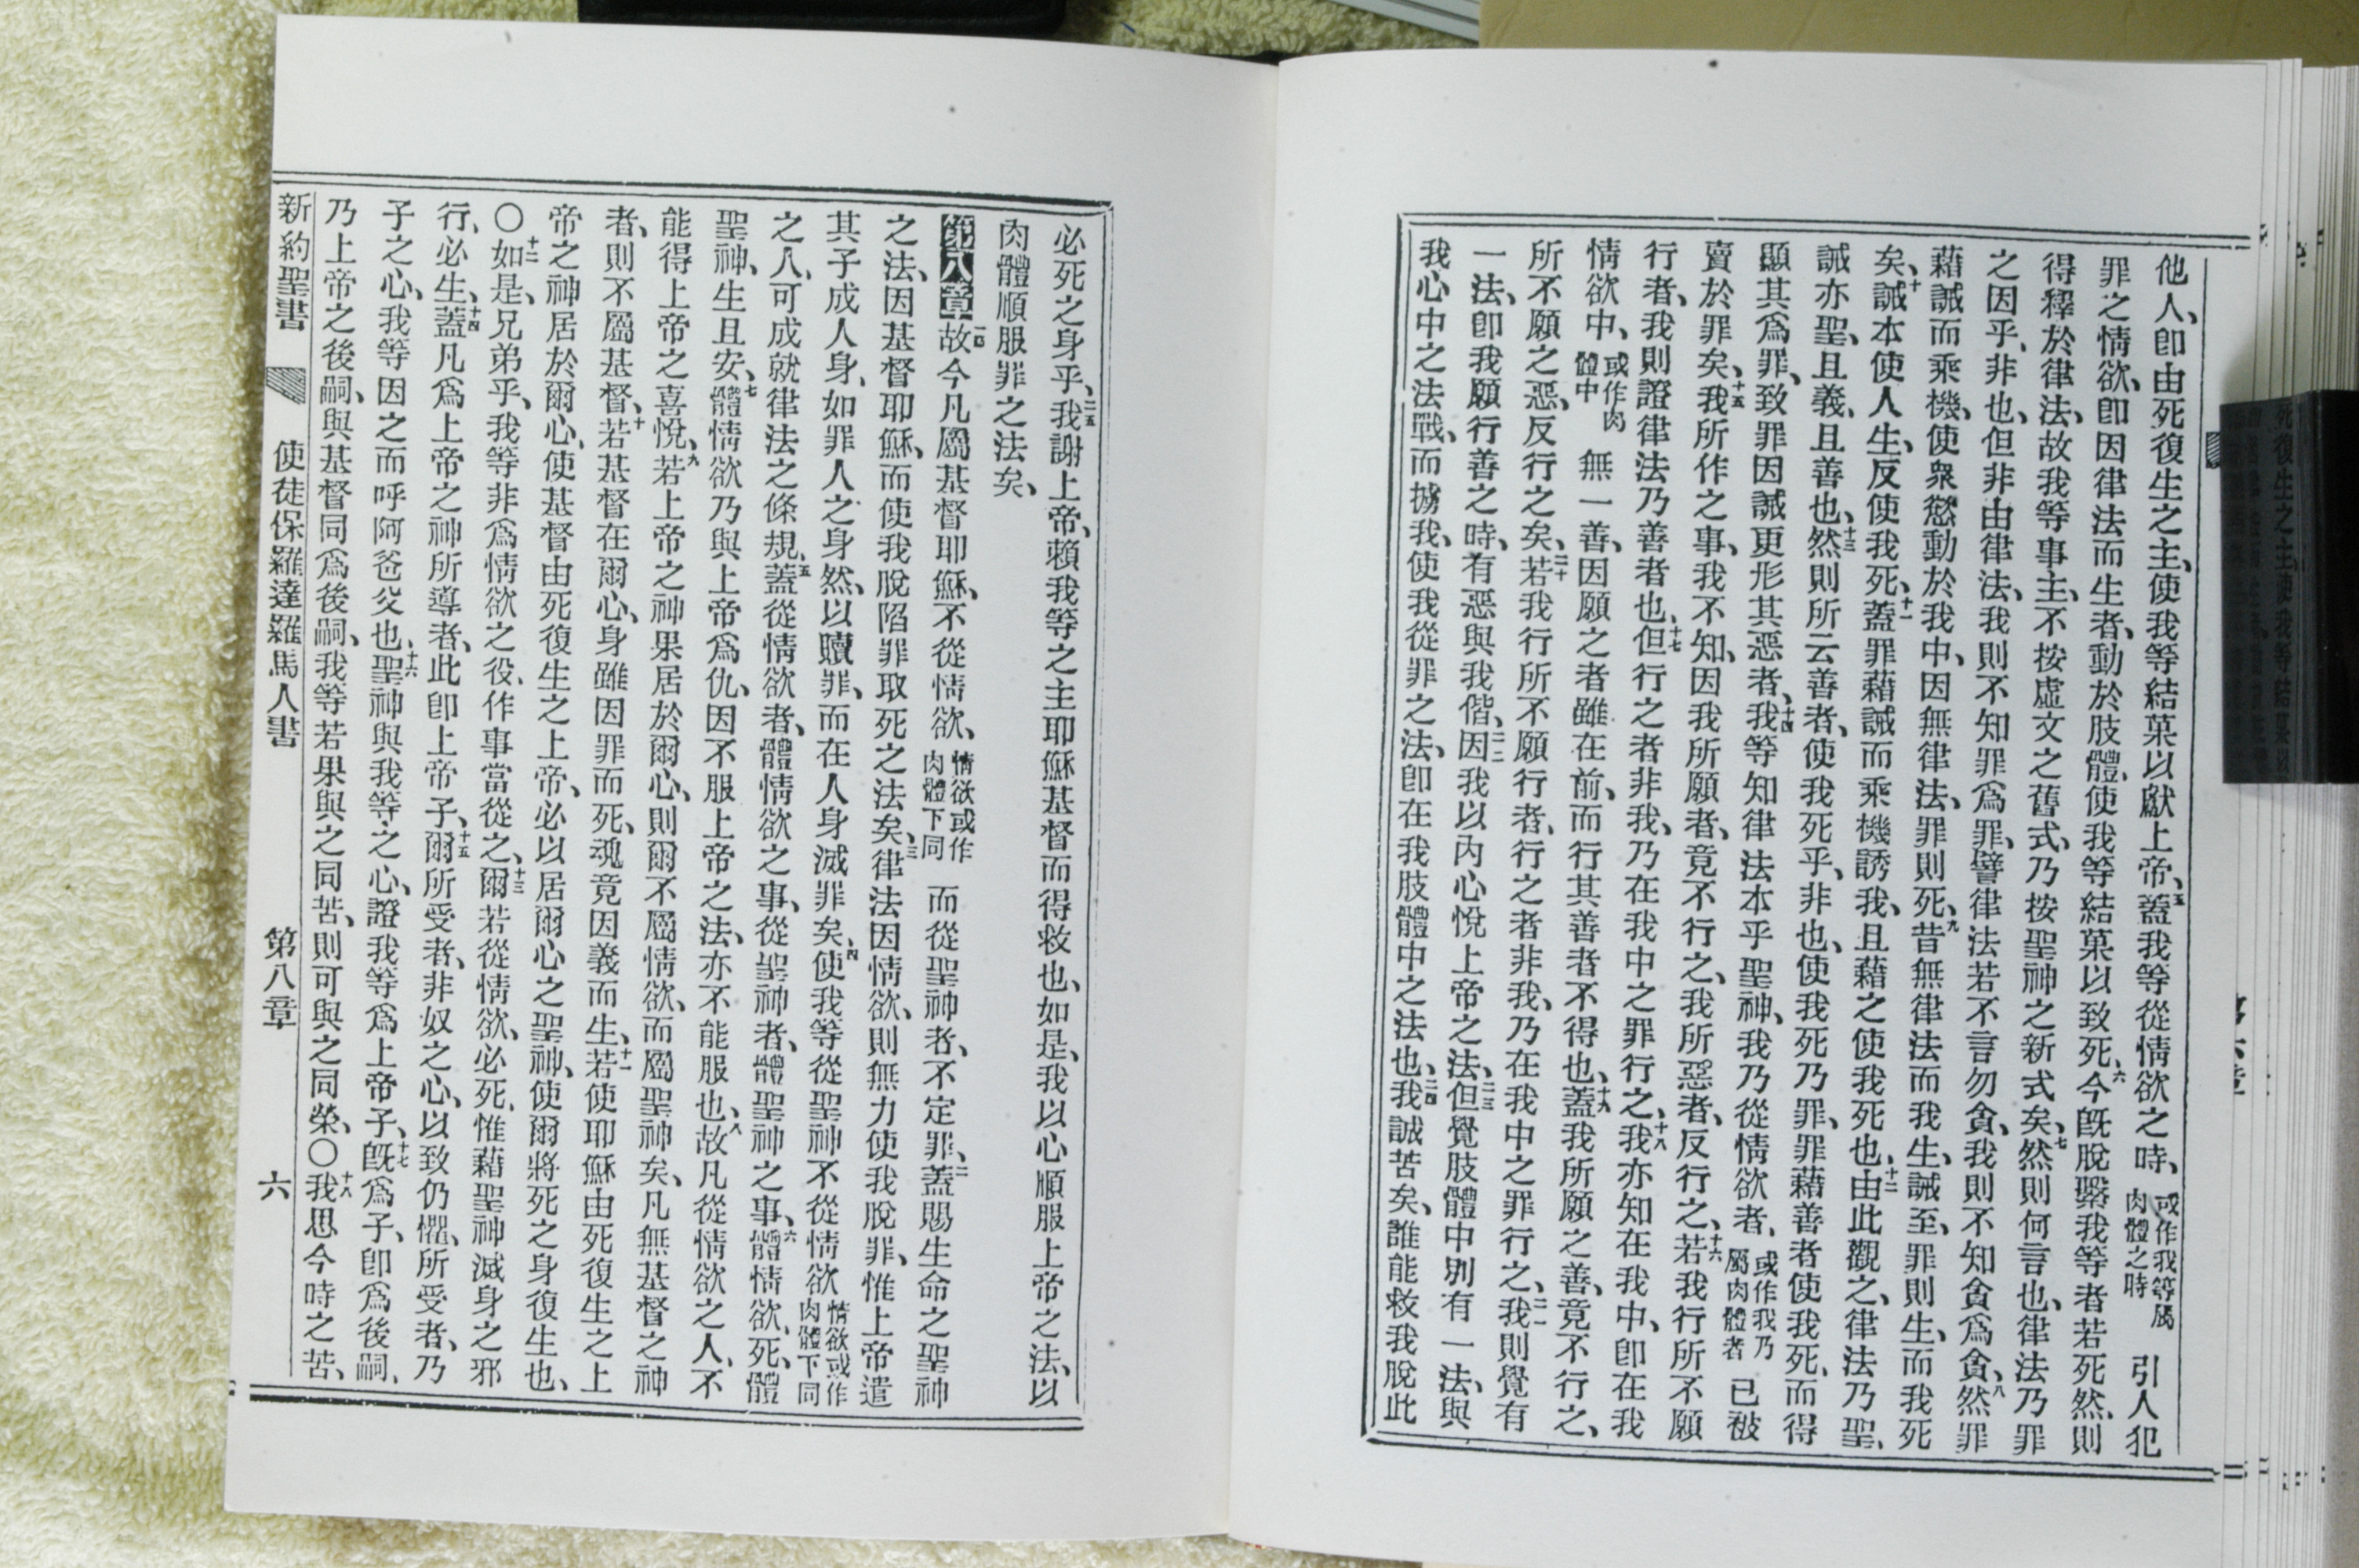 他人、卽由死復生之主、使我等結菓以獻上帝、五蓋我等從情欲之時、或作我等屬肉體之時引人犯
罪之情欲、卽因律法而生者、動於肢體、使我等結菓以致死、六今旣脫繄我等者若死然、則
得釋於律法、故我等事主、不按虛文之舊式、乃按聖神之新式矣、七然則何言也、律法乃罪
之因乎、非也、但非由律法、我則不知罪爲罪、譬律法若不言勿貪、我則不知貪爲貪、八然罪
藉誡而乘機、使衆慾動於我中、因無律法、罪則死、九昔無律法而我生、誡至、罪則生、而我死
矣、十誡本使人生、反使我死、十一蓋罪藉誡而乘機誘我、且藉之使我死也、十二由此觀之、律法乃聖、
誡亦聖、且義、且善也、十三然則所云善者、使我死乎、非也、使我死乃罪、罪藉善者使我死、而得
顯其爲罪、致罪因誡更形其惡者、十四我等知律法本乎聖神、我乃從情欲者、或作我乃屬肉體者已被
賣於罪矣、十五我所作之事、我不知、因我所願者、竟不行之、我所惡者、反行之、十六若我行所不願
行者、我則證律法乃善者也、十七但行之者非我、乃在我中之罪行之、十八我亦知在我中、卽在我
情欲中、或作肉體中無一善、因願之者雖在前、而行其善者不得也、十九蓋我所願之善、竟不行之、
所不願之惡、反行之矣、二十若我行所不願行者、行之者非我、乃在我中之罪行之、二一我則覺有
一法、卽我願行善之時、有惡與我偕、二二因我以內心悅上帝之法、二三但覺肢體中別有一法、與
我心中之法戰、而擄我、使我從罪之法、卽在我肢體中之法也、二四我誠苦矣、誰能救我脫此
必死之身乎、二五我謝上帝、賴我等之主耶穌基督而得救也、如是、我以心順服上帝之法、以
肉體順服罪之法矣、
第八章 一故今凡屬基督耶穌、不從情欲、情欲或作肉體下同而從聖神者、不定罪、二蓋賜生命之聖神
之法、因基督耶穌、而使我脫陷罪取死之法矣、三律法因情欲、則無力使我脫罪、惟上帝遣
其子成人身、如罪人之身然、以贖罪、而在人身滅罪矣、四使我等從聖神不從情欲情欲或作肉體下同
之人、可成就律法之條規、五蓋從情欲者、體情欲之事、從聖神者、體聖神之事、六體情欲、死、體
聖神、生且安、七體情欲乃與上帝爲仇、因不服上帝之法、亦不能服也、八故凡從情欲之人、不
能得上帝之喜悅、九若上帝之神果居於爾心、則爾不屬情欲、而屬聖神矣、凡無基督之神
者、則不屬基督、十若基督在爾心、身雖因罪而死、魂竟因義而生、十一若使耶穌由死復生之上
帝之神居於爾心、使基督由死復生之上帝、必以居爾心之聖神、使爾將死之身復生也、
〇十二如是、兄弟乎、我等非爲情欲之役、作事當從之、十三爾若從情欲、必死、惟藉聖神滅身之邪
行、必生、十四蓋凡爲上帝之神所導者、此卽上帝子、十五爾所受者、非奴之心、以致仍懼、所受者、乃
子之心、我等因之而呼阿爸父也、十六聖神與我等之心、證我等爲上帝子、十七旣爲子、卽爲後嗣、
乃上帝之後嗣、與基督同爲後嗣、我等若果與之同苦、則可與之同榮、〇十八我思今時之苦、
新約聖書 使徒保羅達羅馬人書 第八章 六